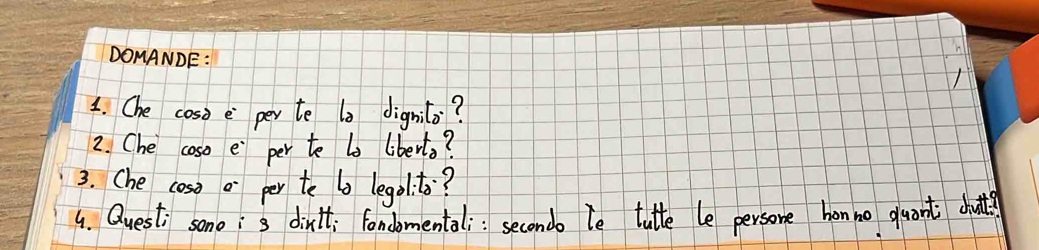 DOMANDE:
1. Che cosa è per te la dignità?
2. Che cosa è per te la libertà?
3. Che cosa è per te la legalità?
4. Questi sono i 3 diritti fondamentali: secondo te tutte le persone hanno questi diritti?